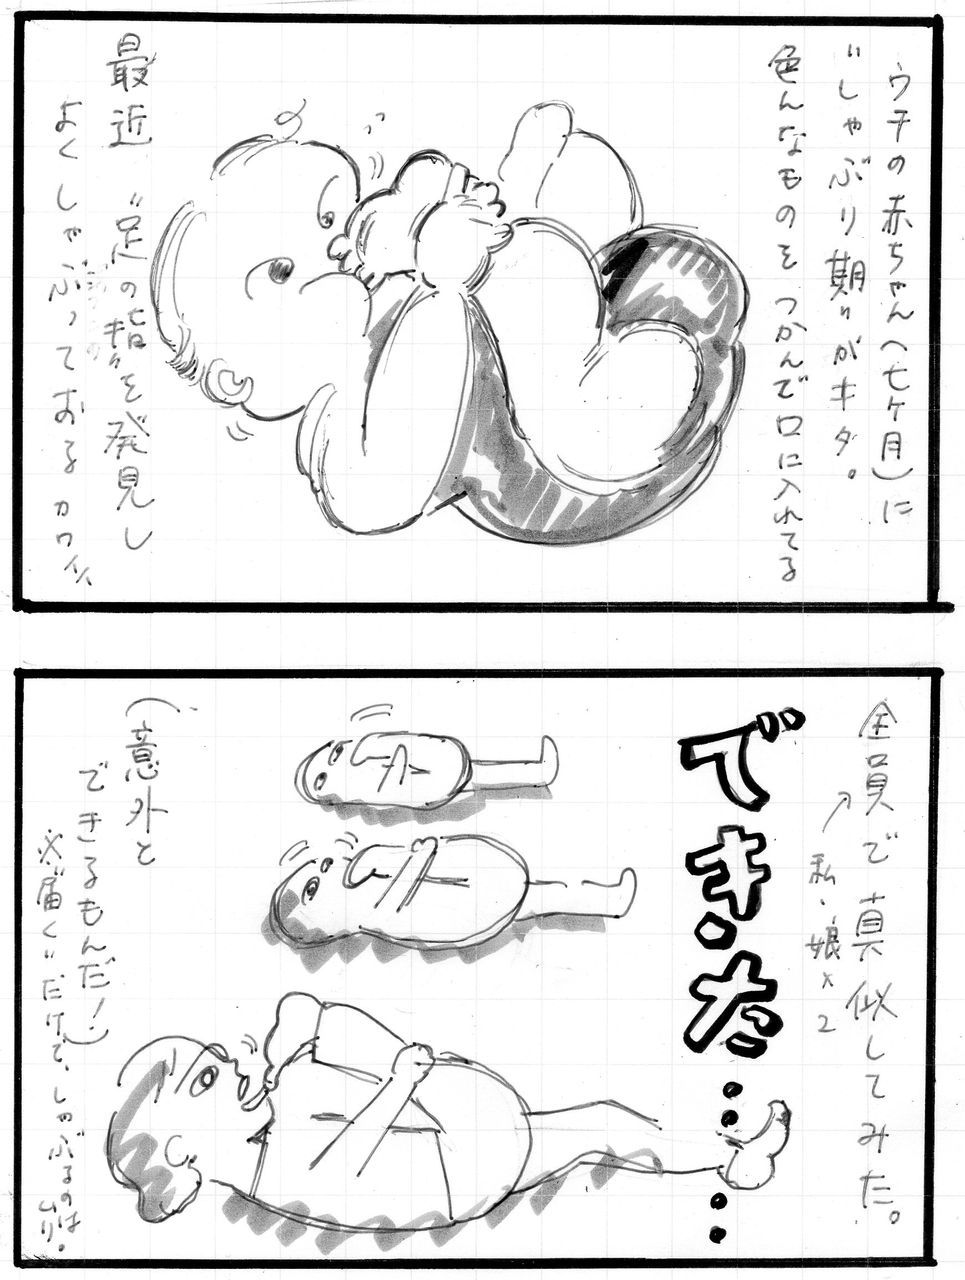 ウチの赤ちゃん(七ヶ月)に
"しゃぶり期"がキタ。
色んなものをつかんで口に入れてる
最近"足の指"を発見し
よくしゃぶっておるカワイイ
全員で真似してみた。
私・娘×2
できた……
(意外と
できるもんだ!)
※"届く"だけで、しゃぶるのは
ムリ。